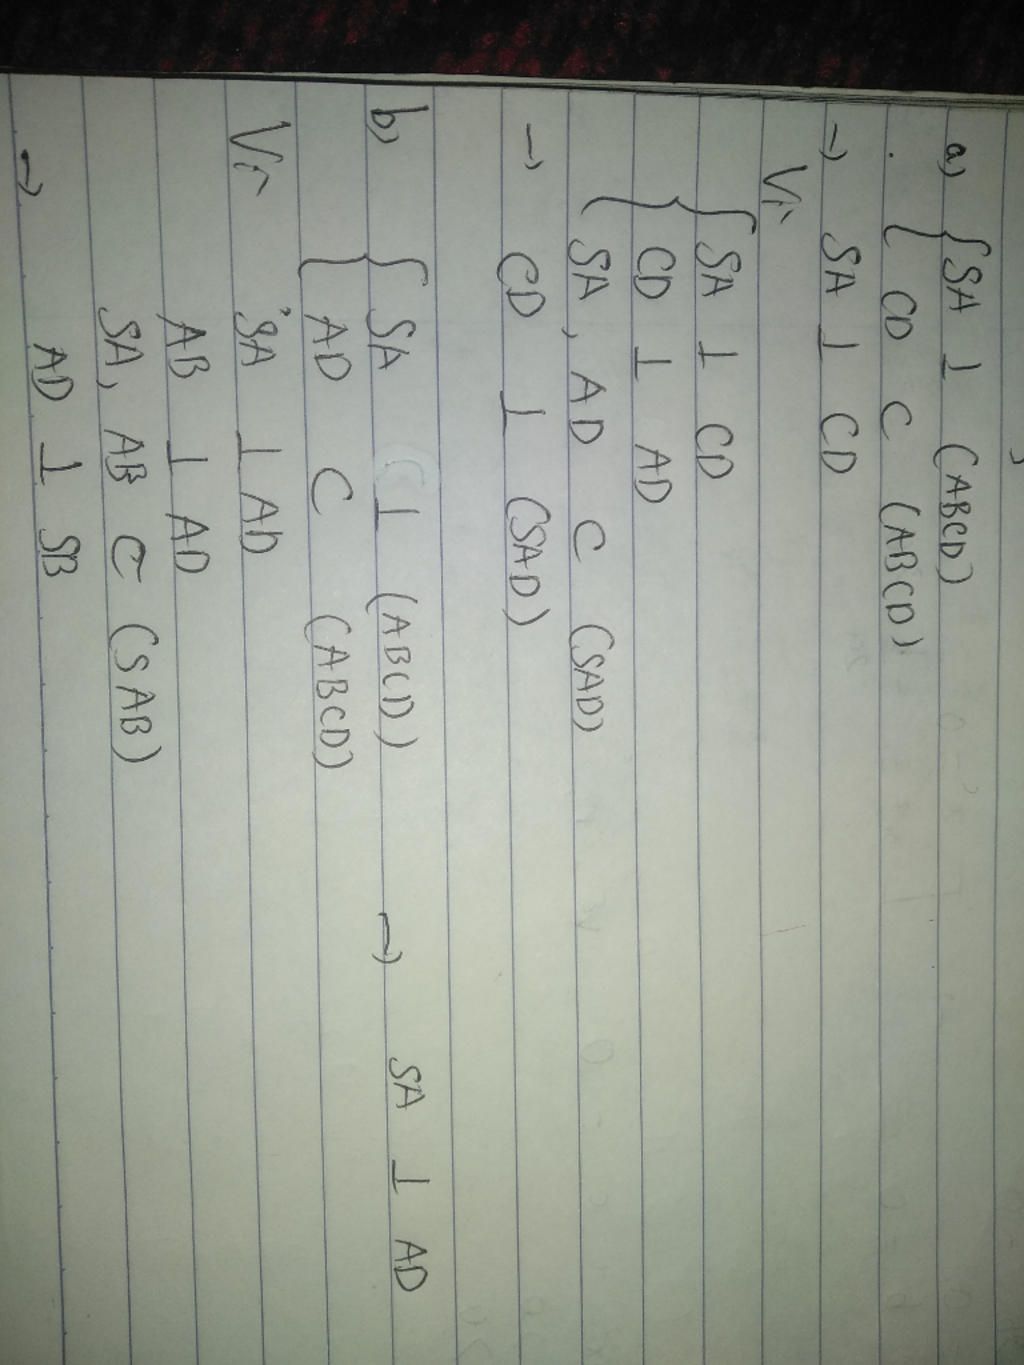 a) { SA ⊥ (ABCD)
CD ⊂ (ABCD)
→ SA ⊥ CD
Vì
{ SA ⊥ CD
CD ⊥ AD
SA, AD ⊂ (SAD)
→ CD ⊥ (SAD)
b) { SA ⊥ (ABCD) → SA ⊥ AD
AD ⊂ (ABCD)
Vì SA ⊥ AD
AB ⊥ AD
SA, AB ⊂ (SAB)
→ AD ⊥ SB